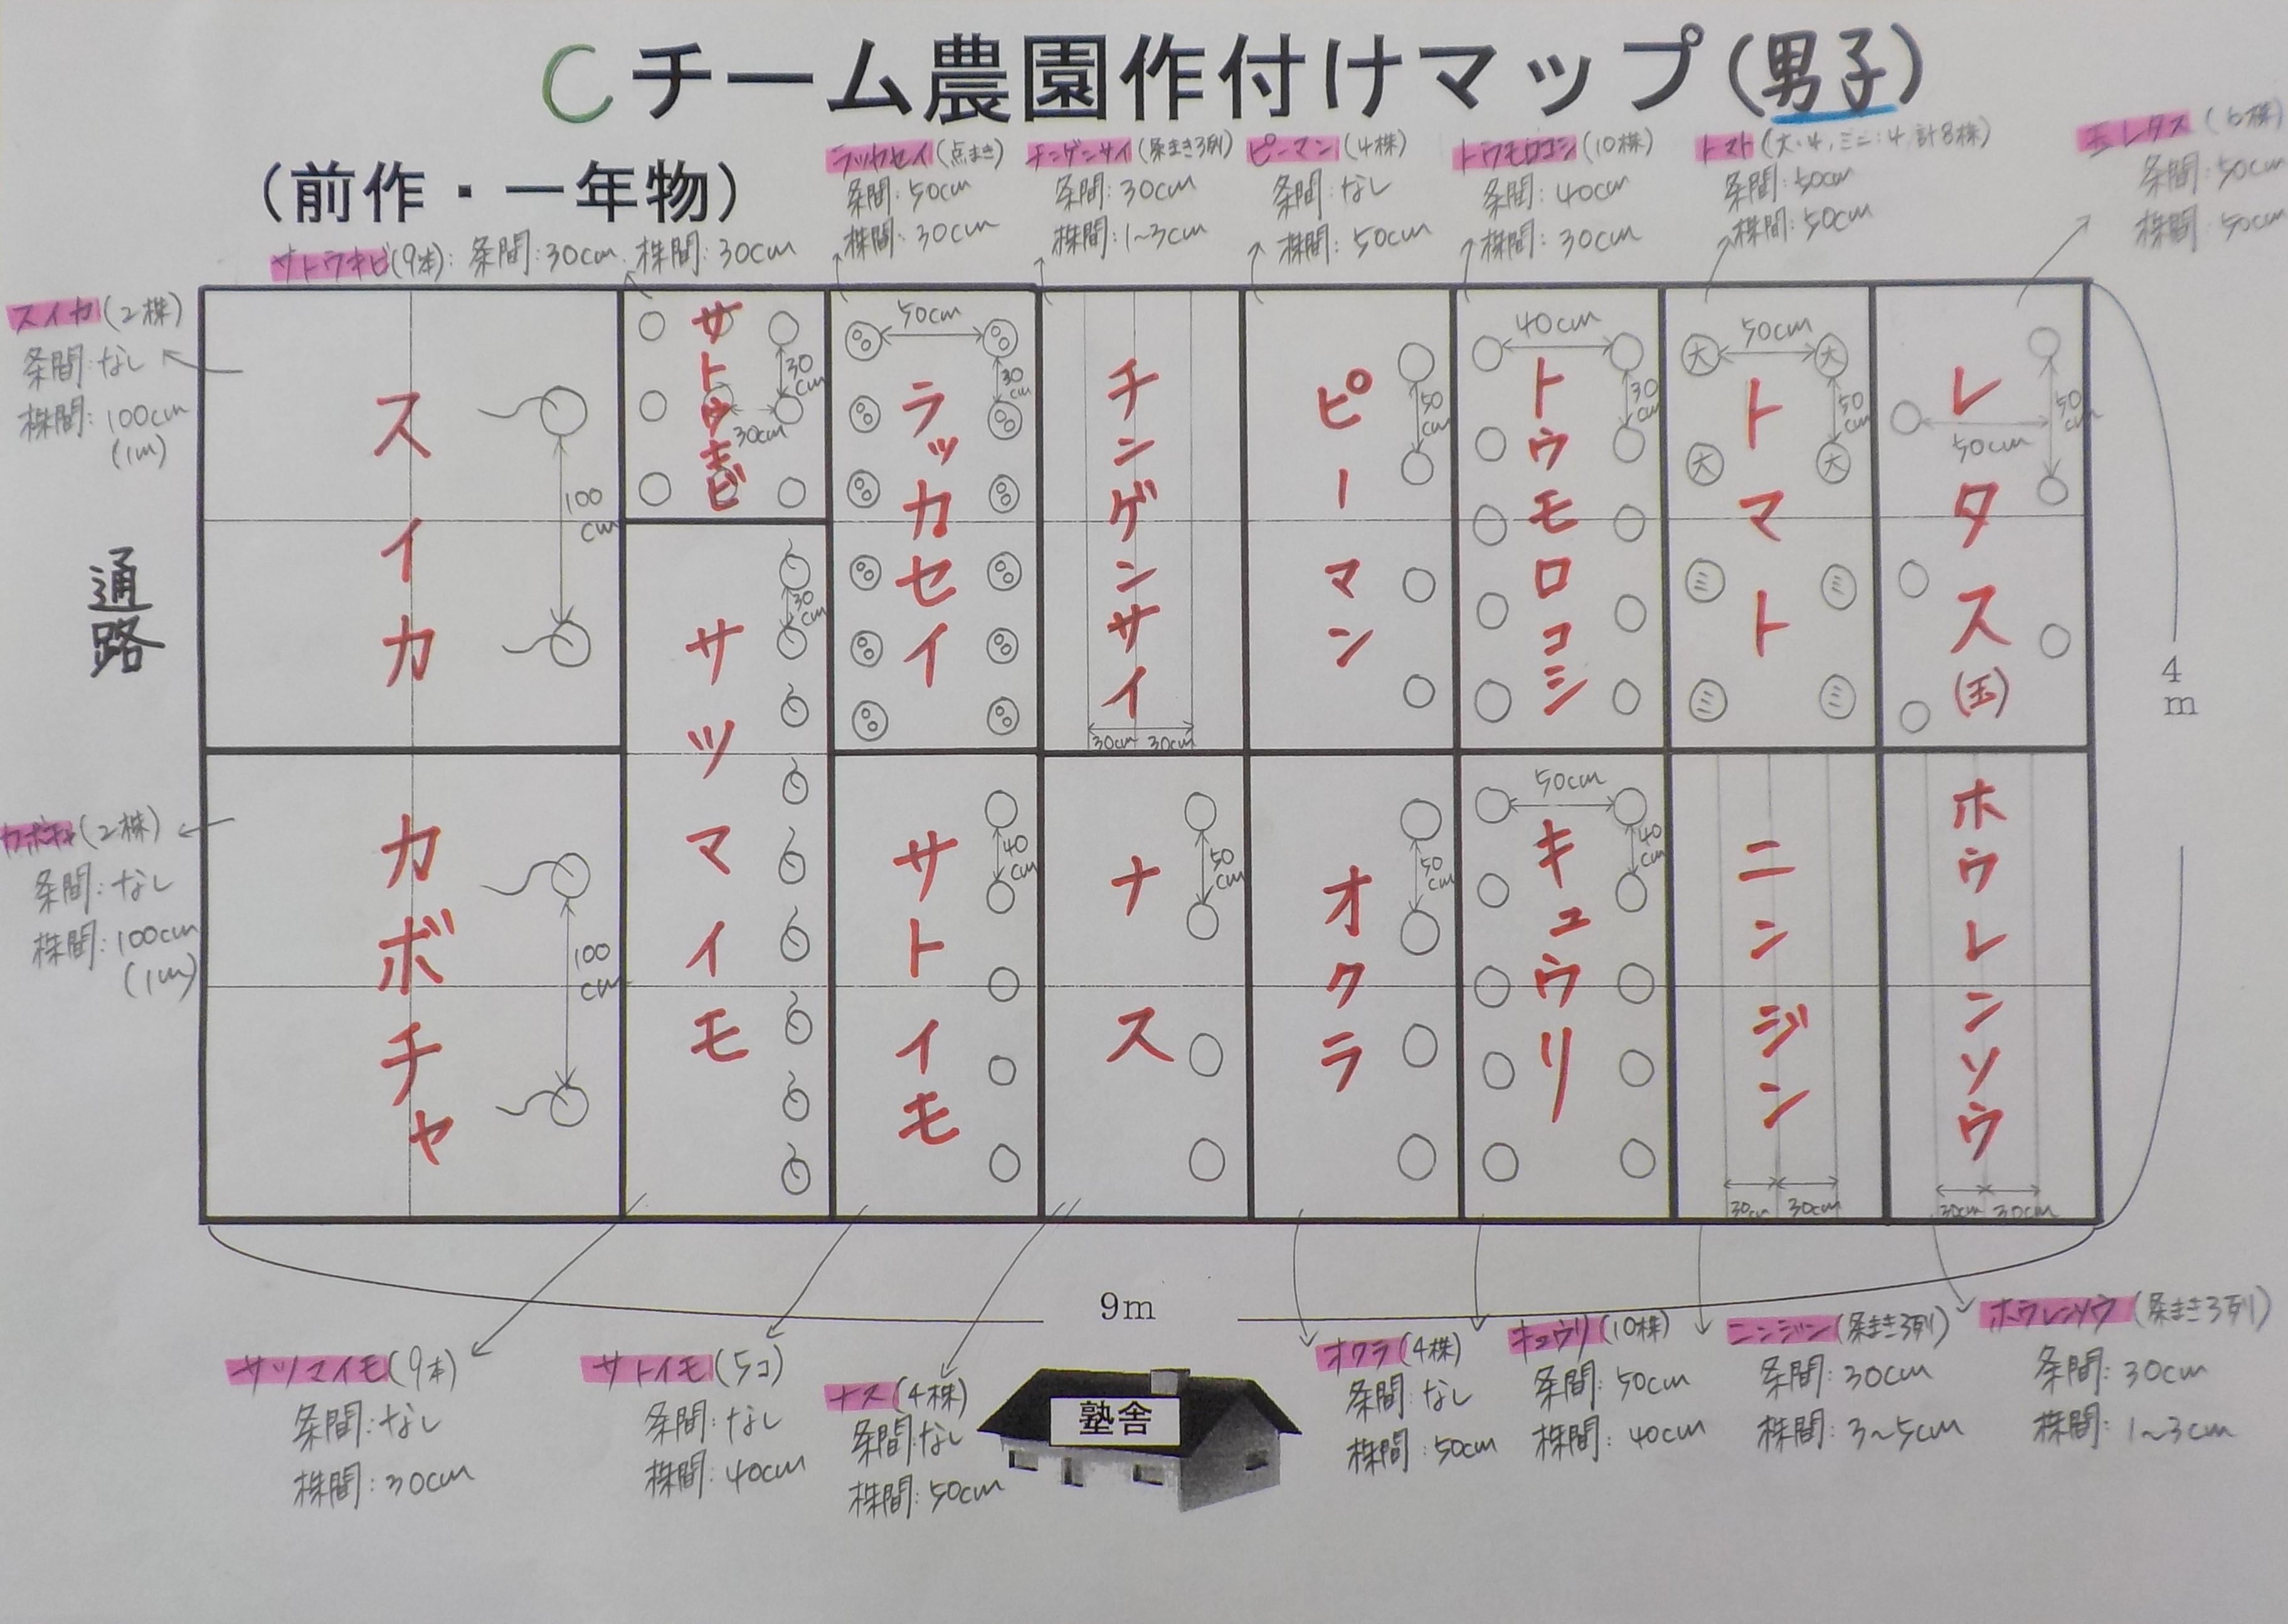 Cチーム農園作付けマップ(男子)
(前作・一年物)
サトウキビ(9本): 条間:30cm 株間:30cm
ラッカセイ(点まき)
条間:50cm
株間:30cm
チンゲンサイ(条まき3列)
条間:30cm
株間:1~3cm
ピーマン(4株)
条間:なし
株間:50cm
トウモロコシ(10株)
条間:40cm
株間:30cm
トマト(大:4,ミニ:4,計8株)
条間:50cm
株間:50cm
玉レタス(6株)
条間:50cm
株間:50cm
スイカ(2株)
条間:なし
株間:100cm
(1m)
通路
カボチャ(2株)
条間:なし
株間:100cm
(1m)
スイカ
100
cm
サトウキビ
30
cm
30cm
ラッカセイ
50cm
30
cm
チンゲンサイ
30cm 30cm
ピーマン
50
cm
トウモロコシ
40cm
30
cm
トマト
50cm
50
cm
大 大
大 大
ミ ミ
ミ ミ
レタス(玉)
50cm
50
cm
カボチャ
100
cm
サツマイモ
30
cm
サトイモ
40
cm
ナス
50
cm
オクラ
50
cm
キュウリ
50cm
40
cm
ニンジン
30cm 30cm
ホウレンソウ
30cm 30cm
4
m
9m
サツマイモ(9本)
条間:なし
株間:30cm
サトイモ(5コ)
条間:なし
株間:40cm
ナス(4株)
条間:なし
株間:50cm
塾舎
オクラ(4株)
条間:なし
株間:50cm
キュウリ(10株)
条間:50cm
株間:40cm
ニンジン(条まき3列)
条間:30cm
株間:3~5cm
ホウレンソウ(条まき3列)
条間:30cm
株間:1~3cm